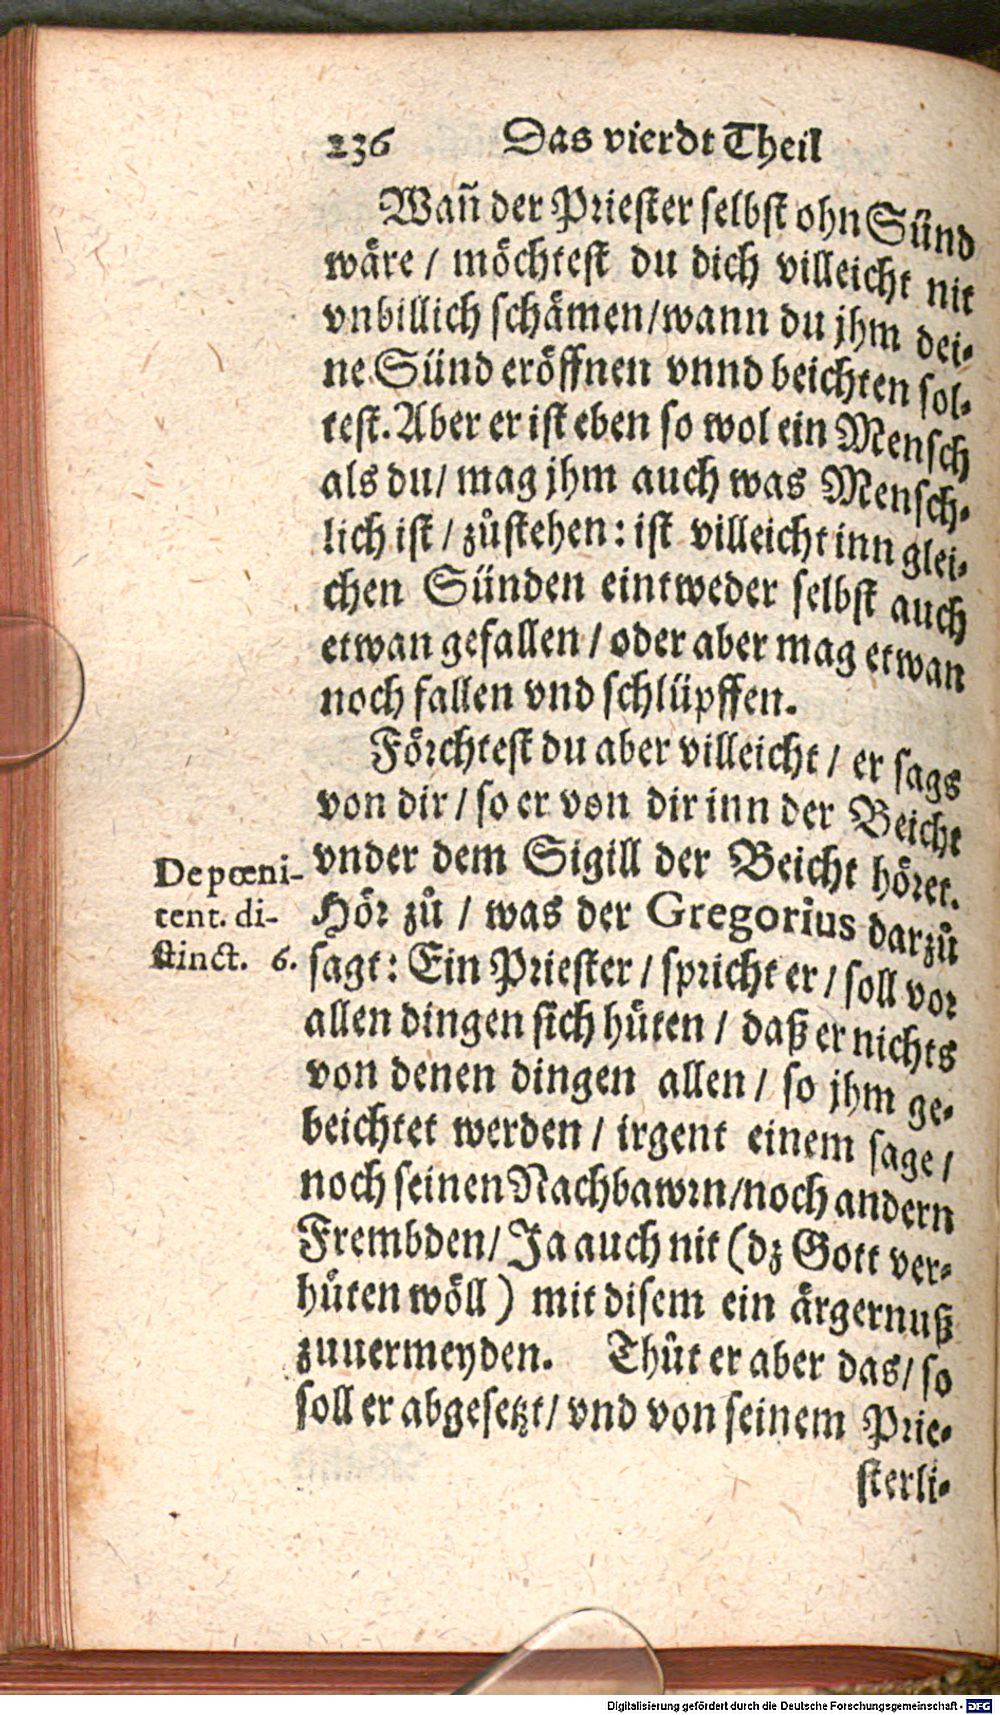 236 Das vierdt Theil
Wañ der Priester selbst ohn Sünd
wäre / möchtest du dich villeicht nit
vnbillich schämen/wann du jhm dei-
ne Sünd eröffnen vnnd beichten sol-
test. Aber er ist eben so wol ein Mensch
als du/ mag jhm auch was Mensch-
lich ist / zůstehen: ist villeicht inn glei-
chen Sünden eintweder selbst auch
etwan gefallen / oder aber mag etwan
noch fallen vnd schlüpffen.
Förchtest du aber villeicht / er sags
von dir / so er von dir inn der Beicht
vnder dem Sigill der Beicht höret.
Hör zů / was der Gregorius darzů
sagt: Ein Priester / spricht er / soll vor
allen dingen sich hüten / daß er nichts
von denen dingen allen / so jhm ge-
beichtet werden / irgent einem sage /
noch seinen Nachbawrn/noch andern
Frembden/ Ja auch nit (dz Gott ver-
hüten wöll) mit disem ein ärgernuß
zuuermeyden. Thůt er aber das/ so
soll er abgesetzt/ vnd von seinem Prie-
sterli-
De pœni-
tent. di-
stinct. 6.
Digitalisierung gefördert durch die Deutsche Forschungsgemeinschaft - DFG